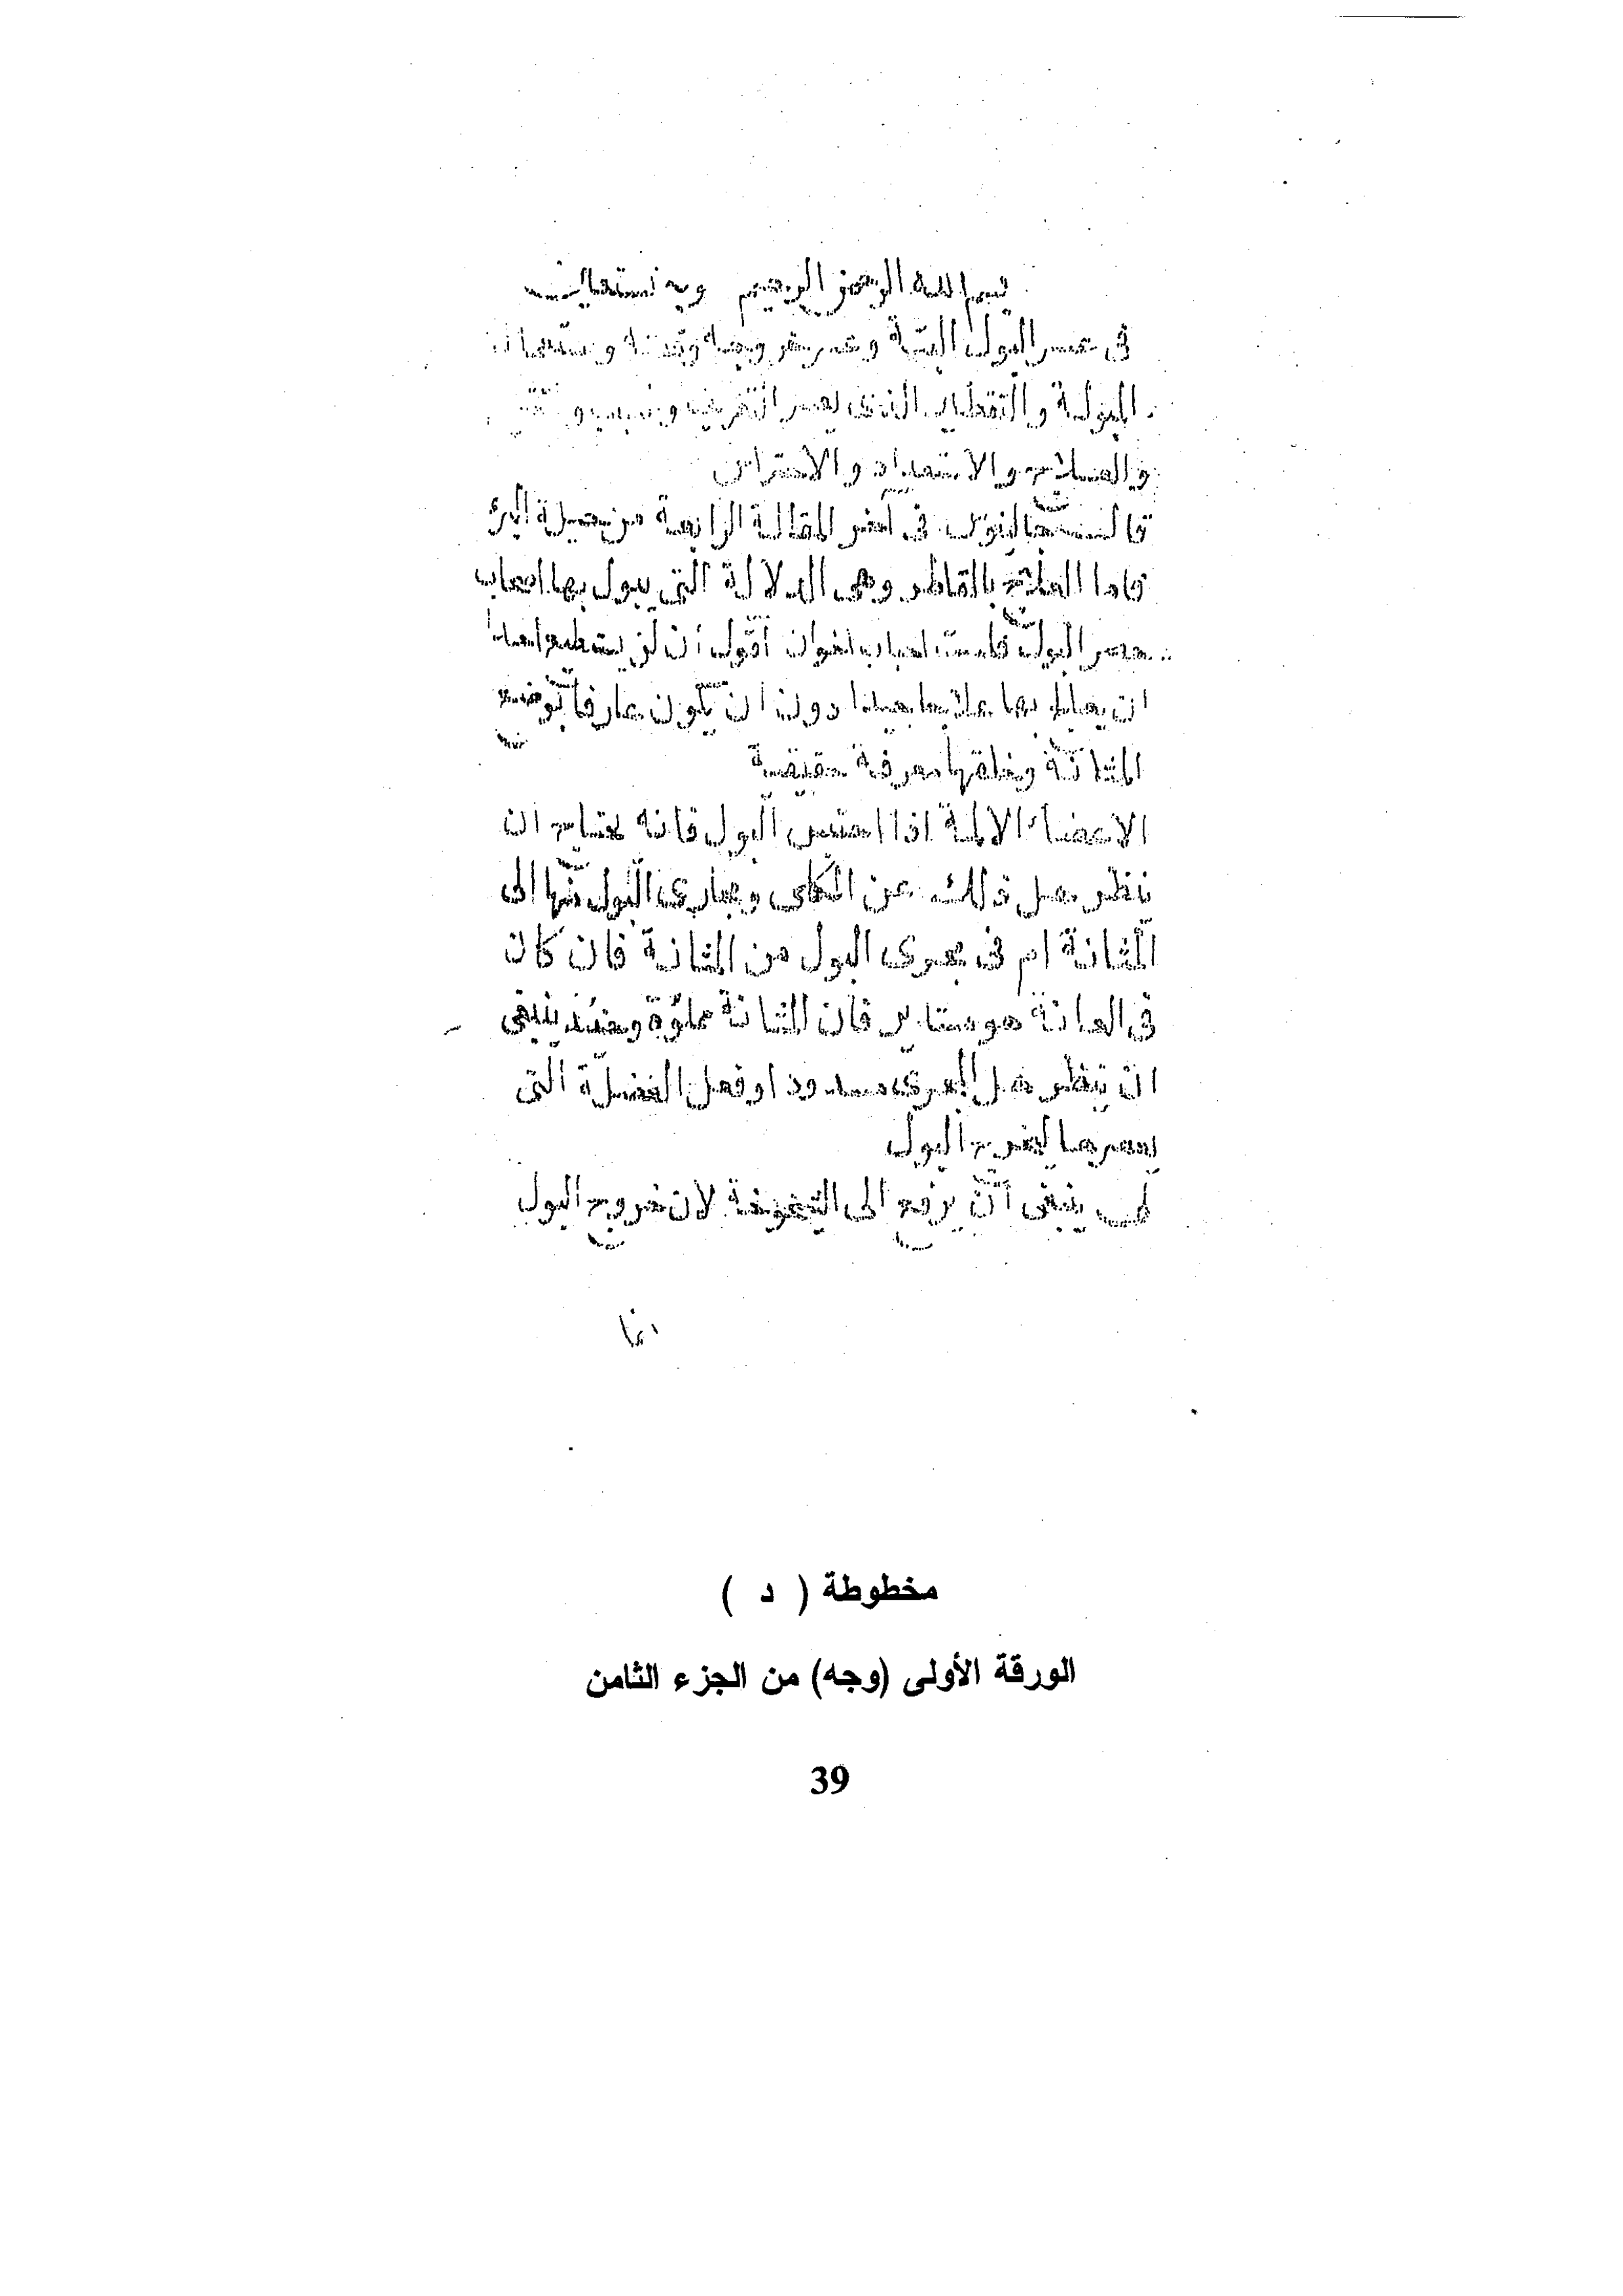 بسم الله الرحمن الرحيم وبه نستعين
فى عسر البول البتة وعسر خروجه
المبولة والتقطير الذى يعسر
والعلاج والاستعداد والاحتراس
قال جالينوس فى آخر المقالة الرابعة من حيلة البرؤ
فاما العلاج بالقاطر وهى الدلالة التى يبول بها اصحاب
حصر البول فلست اقول ان لن يستطيع احدا
ان يعالج بها علاجا جيدا دون ان يكون عارفا بوضع
المثانة وخلقها معرفة حقيقية
الاعضاء الالمة اذا احتبس البول فانه يحتاج ان
ينظر هل ذلك عن الكلى ومجارى البول منها الى
المثانة ام فى مجرى البول من المثانة فان كان
فى العانة هو فان المثانة مملؤة وحينئذ ينبغى
ان تنظر هل المجرى مسدود او فعل العضلة التى
يعصرها ليخرج البول
لى ينبغى أن يرفع الى لان خروج البول
انما
مخطوطة ( د )
الورقة الأولى (وجه) من الجزء الثامن
39